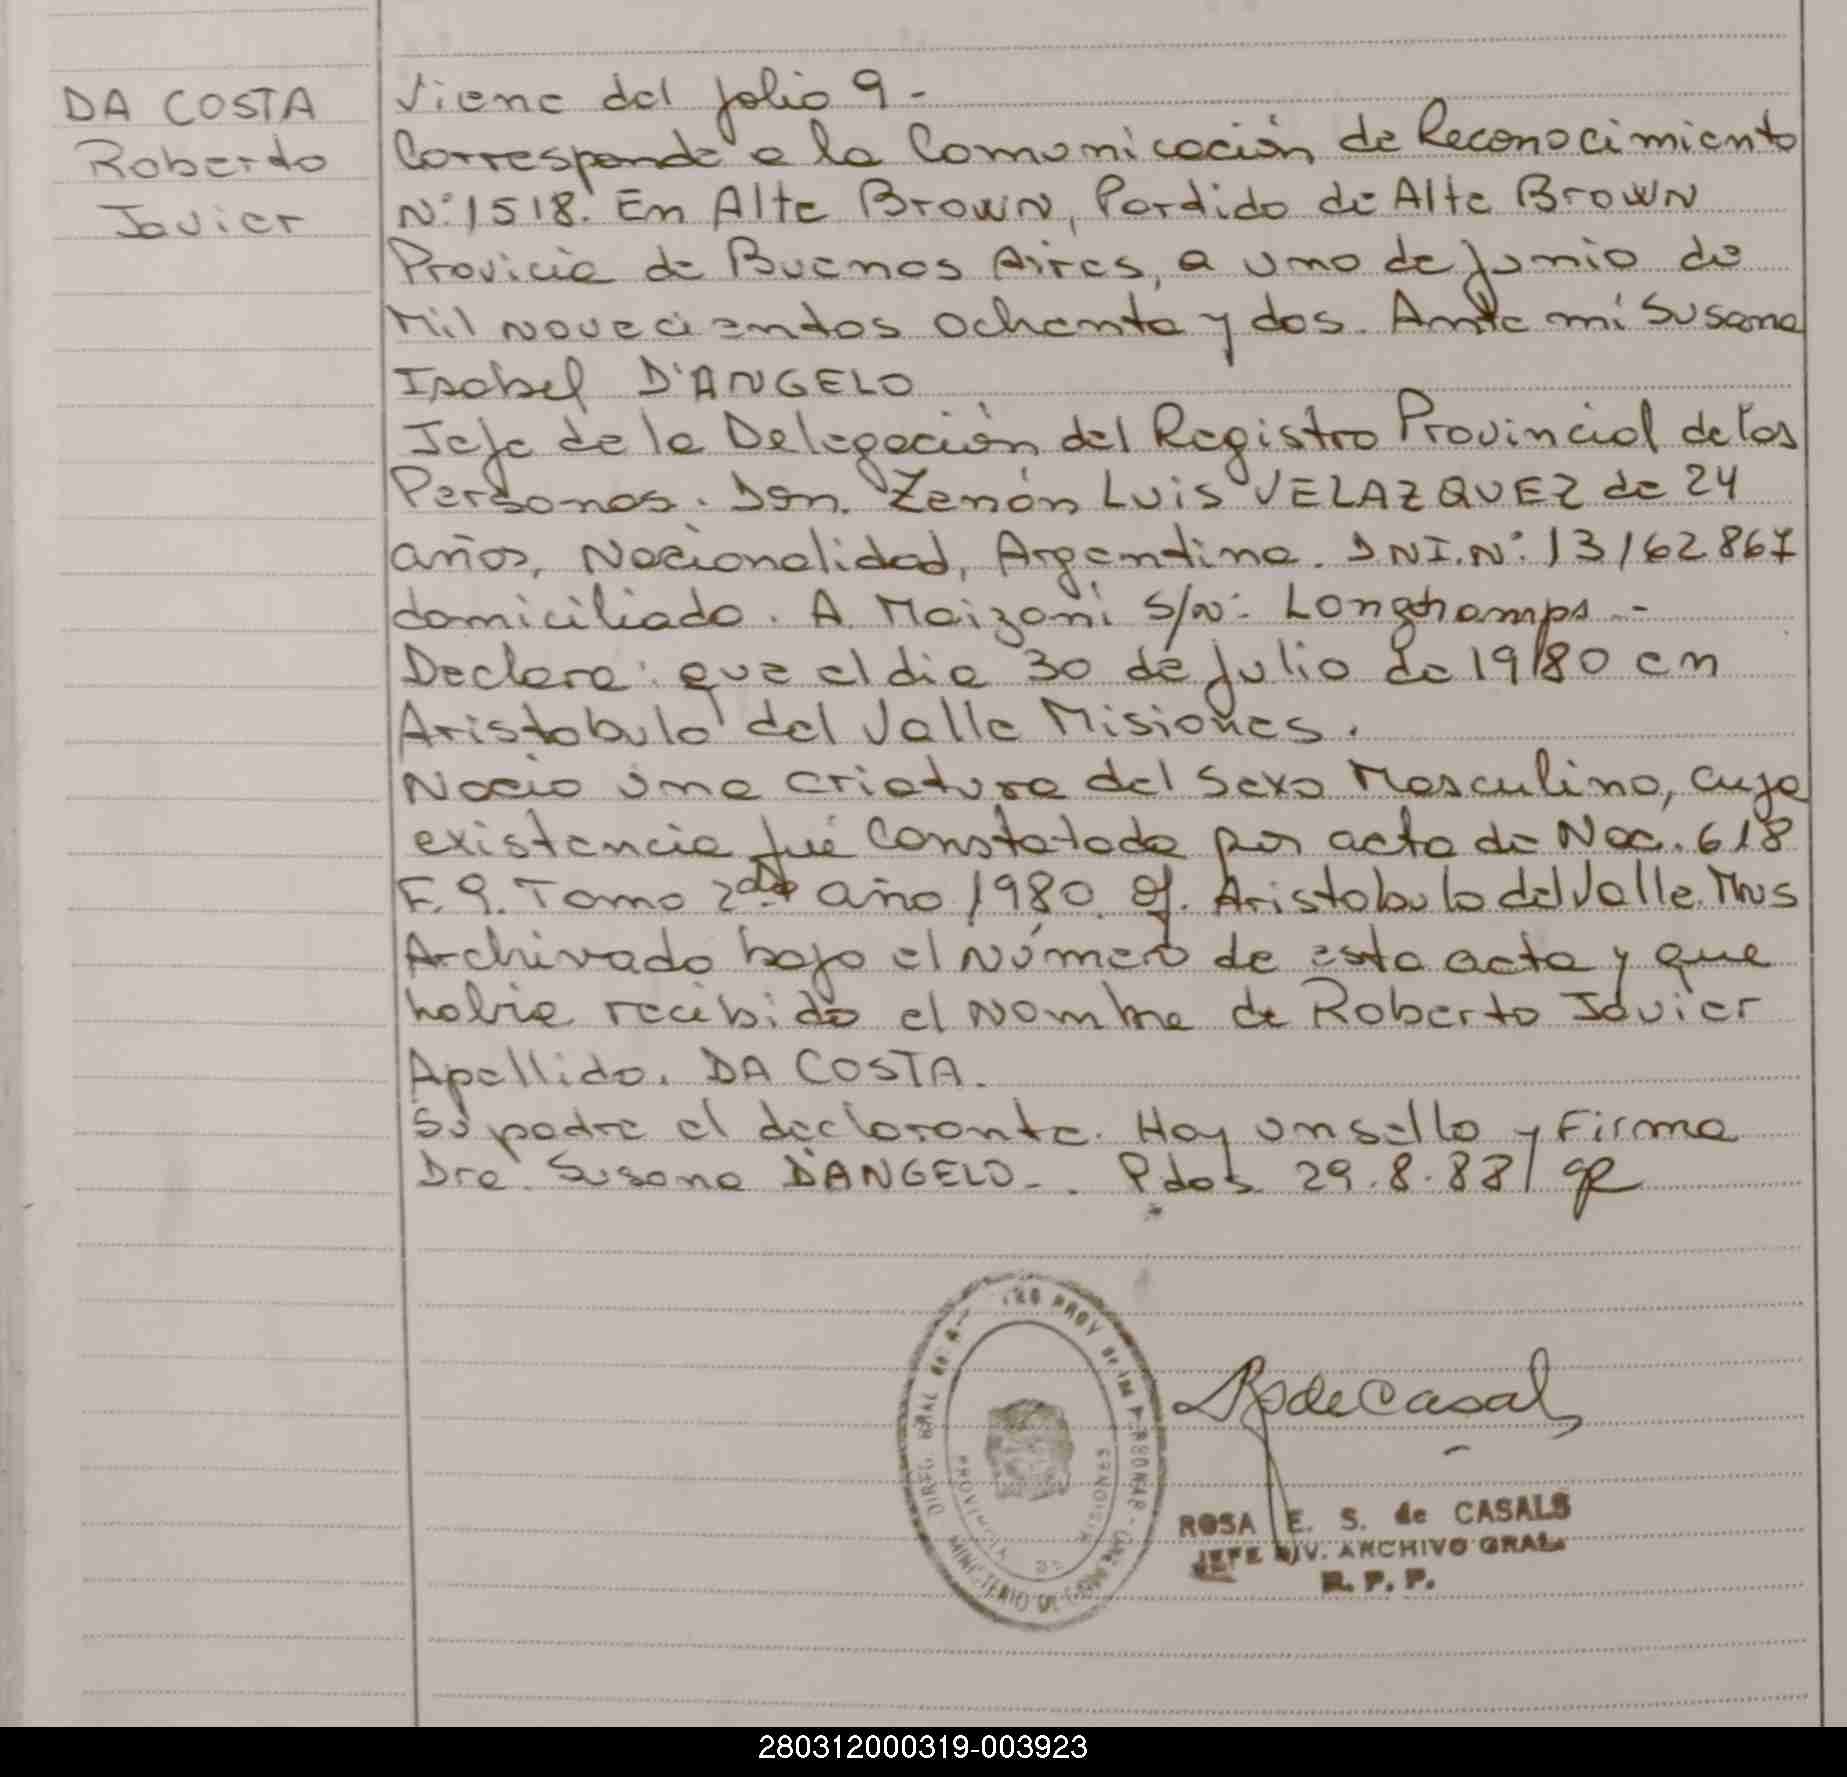 DA COSTA
Roberto
Javier
Viene del folio 9 -
Corresponde a la Comunicación de Reconocimiento
N: 1518. En Alte Brown, Partido de Alte Brown
Provicia de Buenos Aires, a uno de junio de
Mil novecientos ochenta y dos. Ante mí Susana
Isabel D'ANGELO
Jefe de la Delegación del Registro Provincial de las
Personas. Don. Zenón Luis VELAZQUEZ de 24
años, Nacionalidad, Argentina. DNI. N: 13162867
domiciliado. A. Maizani S/N: Longchamps.-
Declara: que el dia 30 de julio de 1980 en
Aristobulo del Valle Misiones.
Nacio una criatura del Sexo Masculino, cuya
existencia fué Constatada por acta de Nac. 618
F. 9. Tomo 2do año 1980. Of. Aristobulo del Valle. Mns
Archivado bajo el Número de esta acta y que
habia recibido el Nombre de Roberto Javier
Apellido. DA COSTA.
Su padre el declarante. Hay un sello y Firma
Dra. Susana D'ANGELO-. Pdas 29.8.88/
MISIONES
ROSA E. S. de CASALS
JEFE DIV. ARCHIVO GRAL.
R. P. P.
280312000319-003923